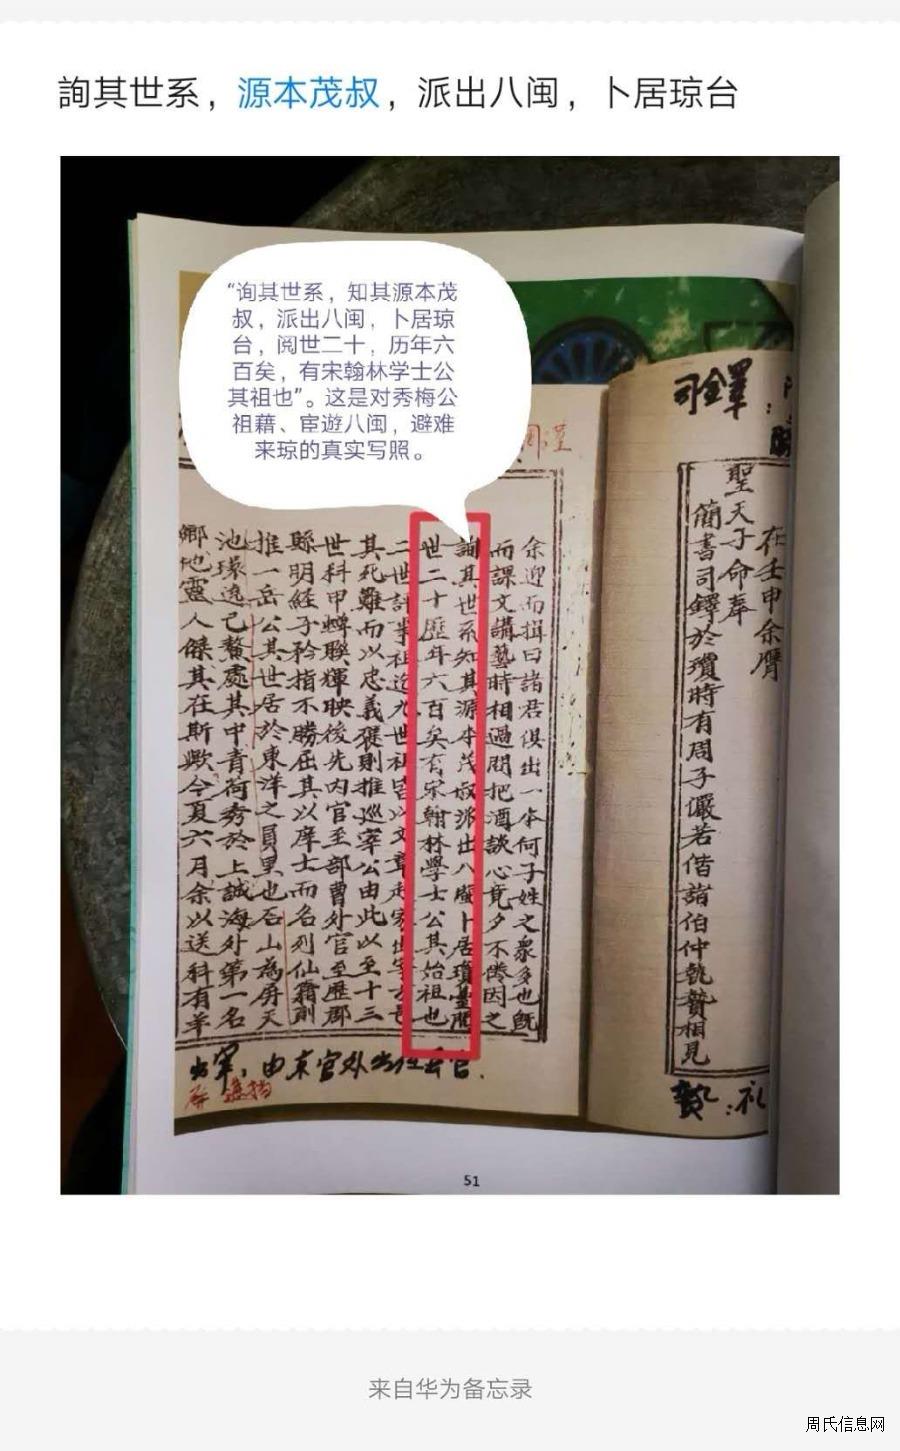 詢其世系，源本茂叔，派出八闽，卜居琼台
“询其世系，知其源本茂
叔，派出八闽，卜居琼
台，阅世二十，历年六
百矣，有宋翰林学士公
其祖也”。这是对秀梅公
祖藉、宦遊八闽，避难
来琼的真实写照。
司鐸：
在壬申余膺
聖天子命奉
簡書司鐸於瓊時有周子儼若偕諸伯仲執贄相見
贄：礼
余迎而揖曰諸君俱出一本何子姓之衆多也旣
而課文講藝時相過問把酒談心竟夕不倦因之
詢其世系知其源本茂叔派出八閩卜居瓊臺閱
世二十歷年六百矣有宋翰林學士公其始祖也
二世計半祖迄九世祖皆以文章起家世宰公
其死難而以忠義褒則推巡宰公由此以至十三
世科甲蟬聯輝映後先内官至部曹外官至歷郡
縣明經子衿指不勝屈其以庠士而名列仙籍則
推一岳公其世居於東洋之員里也石山為屏天
池環遶己鰲處其中青荷秀於上誠海外第一名
鄉地靈人傑其在斯歟今夏六月余以送科有羊
出宰：由京官外出任县官．
51
来自华为备忘录
周氏信息网